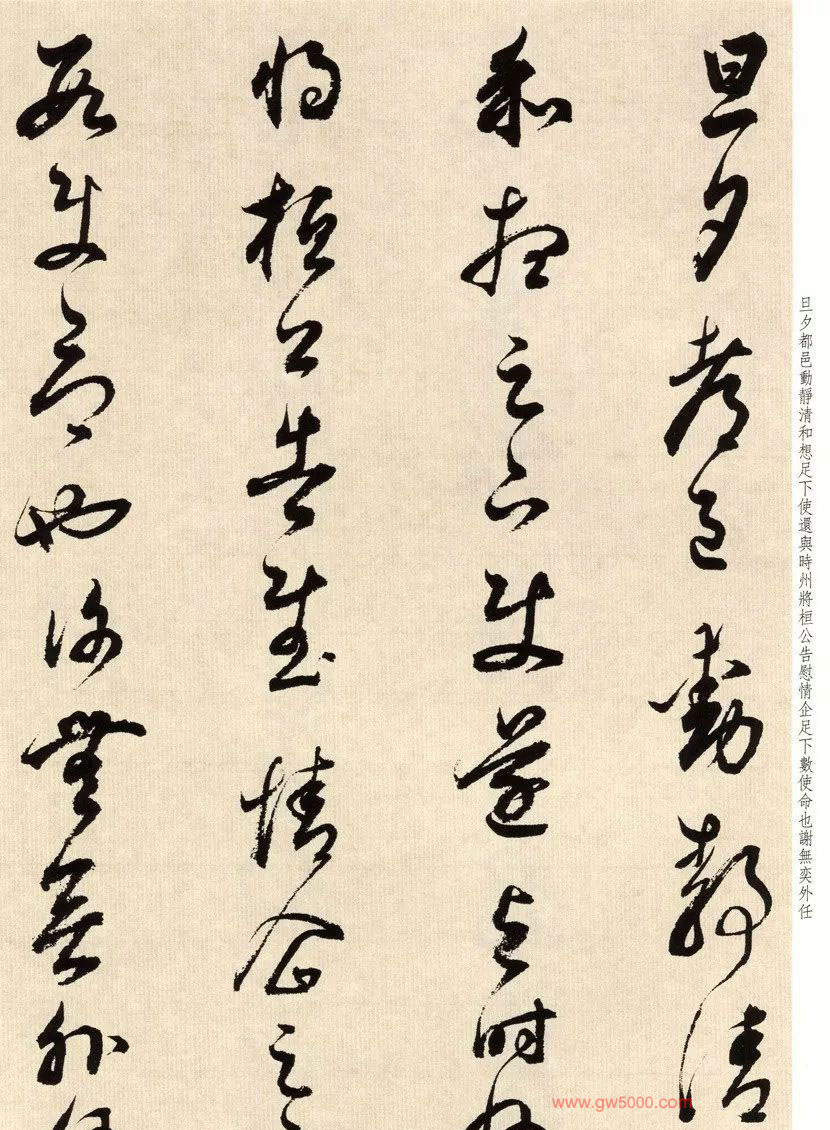 旦夕都邑動靜清
和想足下使還與時州
將桓公告慰情企足下
數使命也謝無奕外任
旦夕都邑動靜清和想足下使還與時州將桓公告慰情企足下數使命也謝無奕外任
www.gw5000.com